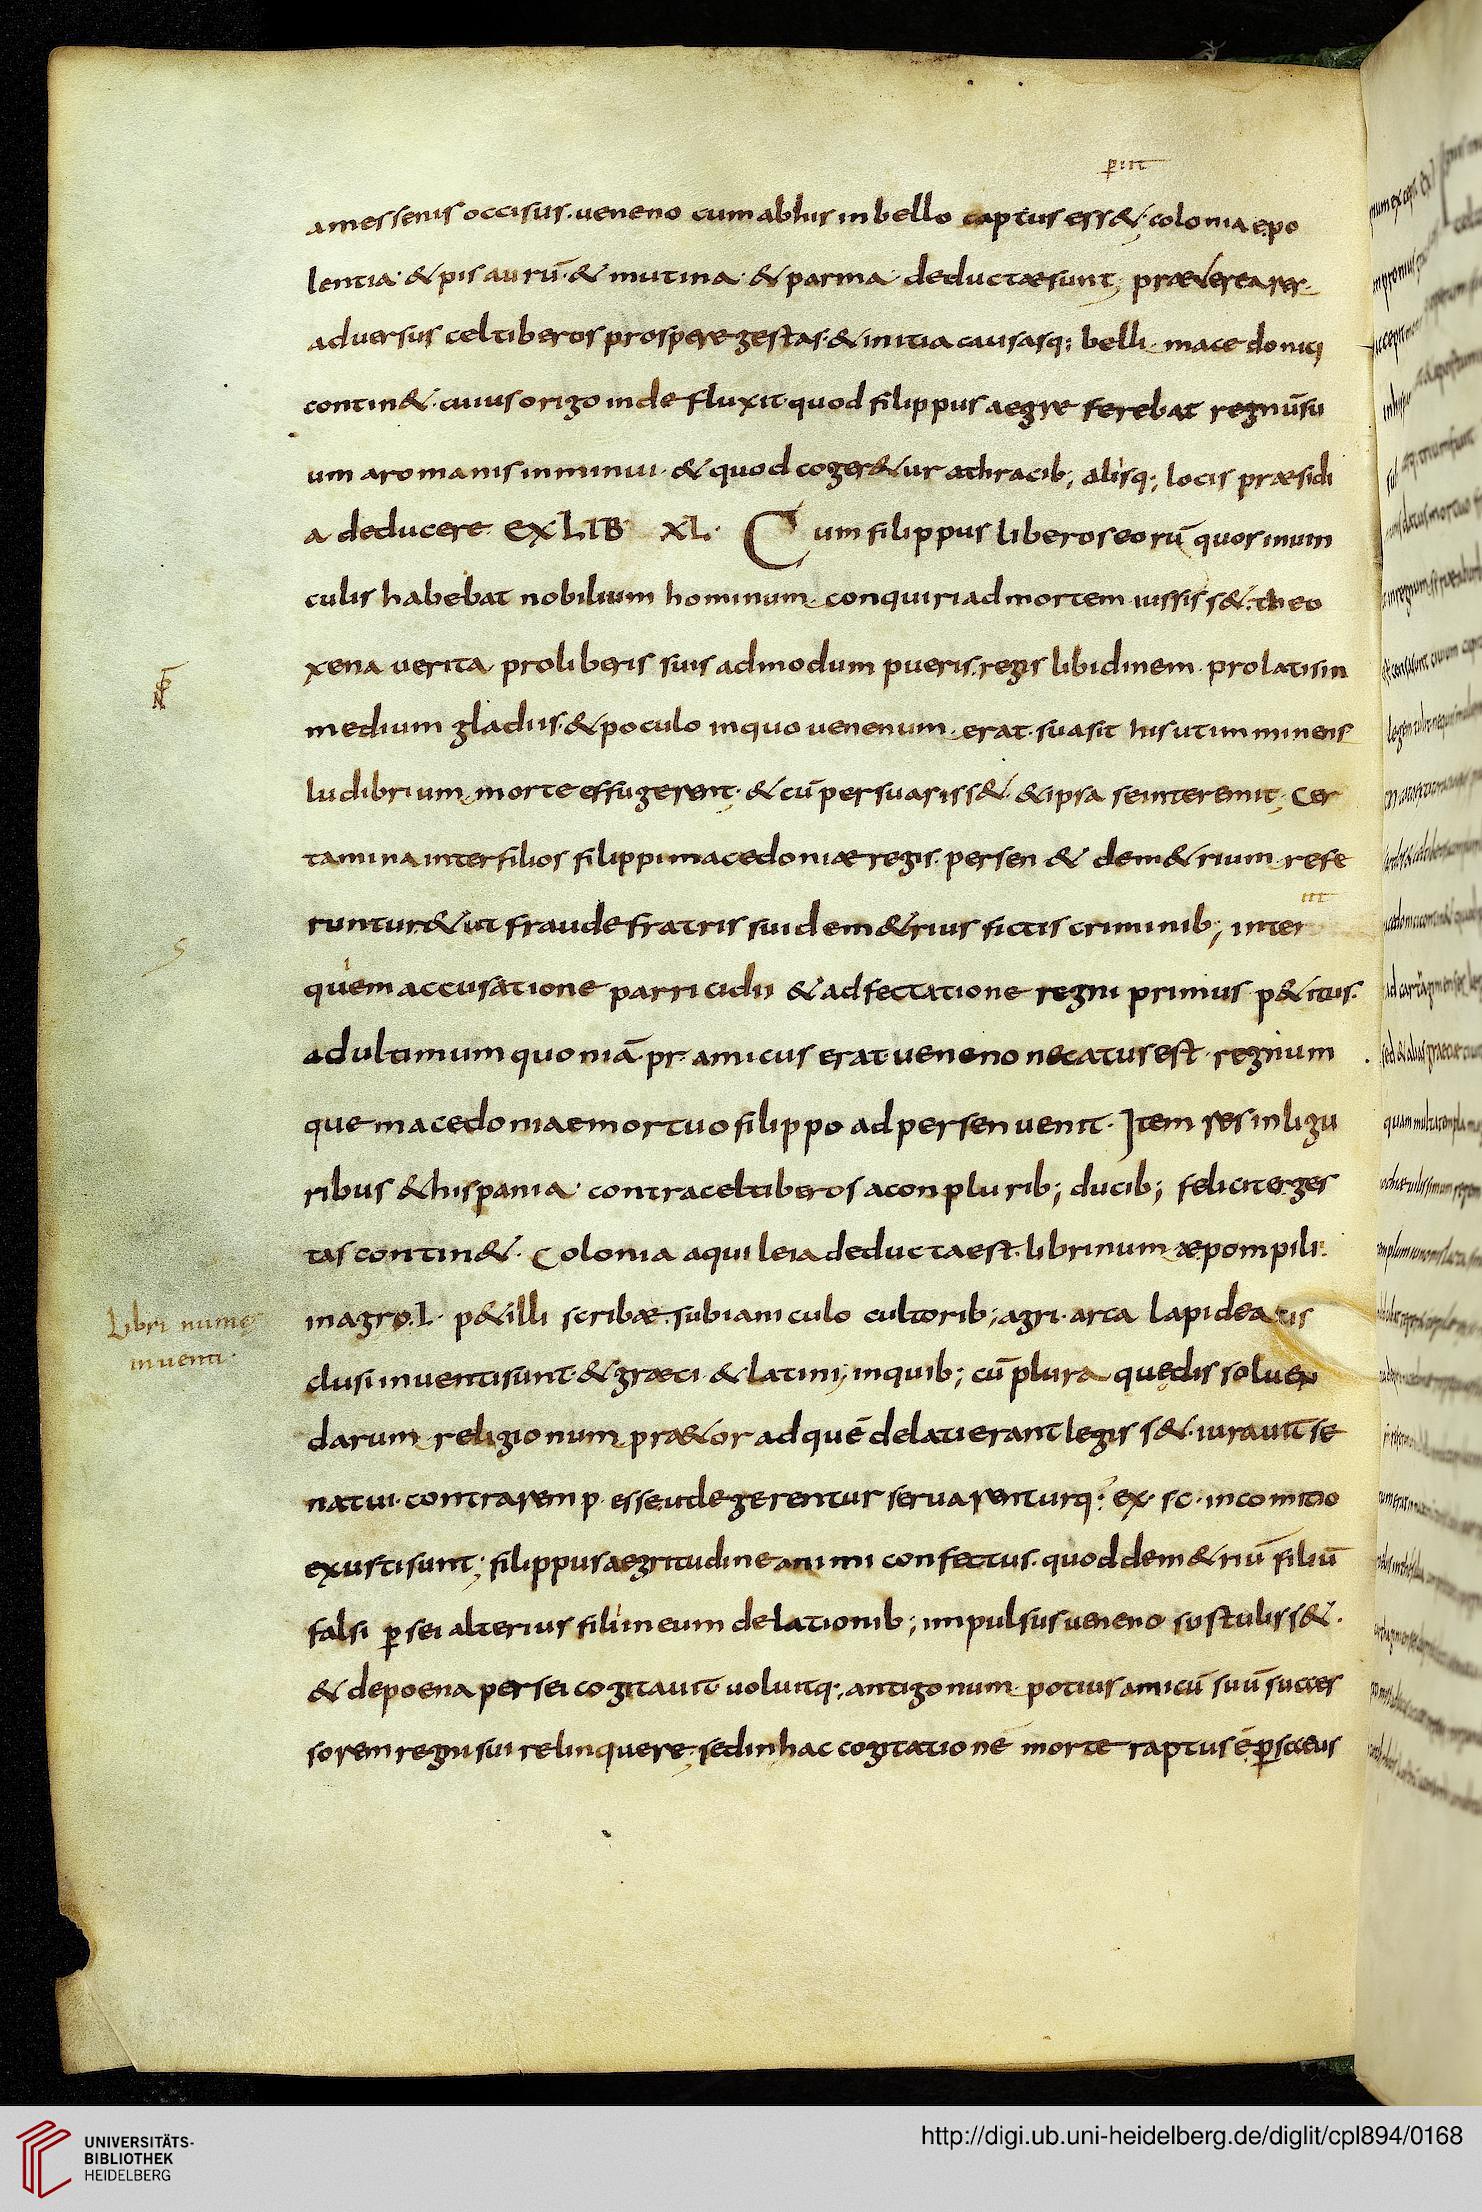 p̄ int
amessenis occisus. ueneno cum abhis inbello captus ess&; coloniae.po
lentia. & pisaurū. & mutina. & parma deductaesunt; praet&ereares.
aduersus celtiberos prosperegestas. & initia causasq; belli macedonici
contin&. cuius origo inde fluxit. quod filippus aegre ferebat regnūsu
um aromanis inminui. & quod coger&ur athracib; alisq; locis praesidi
a deducere. EX LIB XL. Cum filippus liberos eorū quos inuin
culis habebat nobilium hominum conquiri admortem iussiss&. theo
xena uerita proliberis suis admodum pueris. regis libidinem. prolatis in
medium gladiis. & poculo inquo uenenum erat. suasit his utimminens
ludibrium morte effugerent. & cū persuasiss& & ipsa seinteremit; Cer
tamina inter filios filippi macedoniae regis. persen & dem&rium refe
runtur. & ut fraude fratris sui dem&rius fictis criminib; inter
quem accusatione parricidii & adfectatione regni primus p&itus.
adultimum quoniā. pr. amicus erat. ueneno necatus est. regnum
que macedoniae mortuo filippo ad persen uenit. Item res inligu
ribus & hispania. contra celtiberos aconplurib; ducib; feliciterges
tas contin&. Colonia aquileia deducta est. libri numae.pompili.
inagro.L. p&illi scribae. subianiculo cultorib; agri. arca lapidea cis
clusi inuenti sunt. & graeci & latini; inquib; cū plura quędis soluen
darum religionum prae&or adquē delatierant legiss&. iurauit se
natui. contraremp. esse utdegerentur seruarenturq; ex. sc. incomitio
exusti sunt; filippus aegritudine animi confectus. quod dem&riū filiū
falsi p̄sei alterius filii ineum delationib; impulsus ueneno sustuliss&.
& depoena persei cogitauit uoluitq; antigonum potius amicū suū succes
sorem regni sui relinquere; sed inhac cogitatione morte raptus ē. p̄seus
Libri nume
inuenti.
UNIVERSITÄTS-
BIBLIOTHEK
HEIDELBERG
http://digi.ub.uni-heidelberg.de/diglit/cpl894/0168